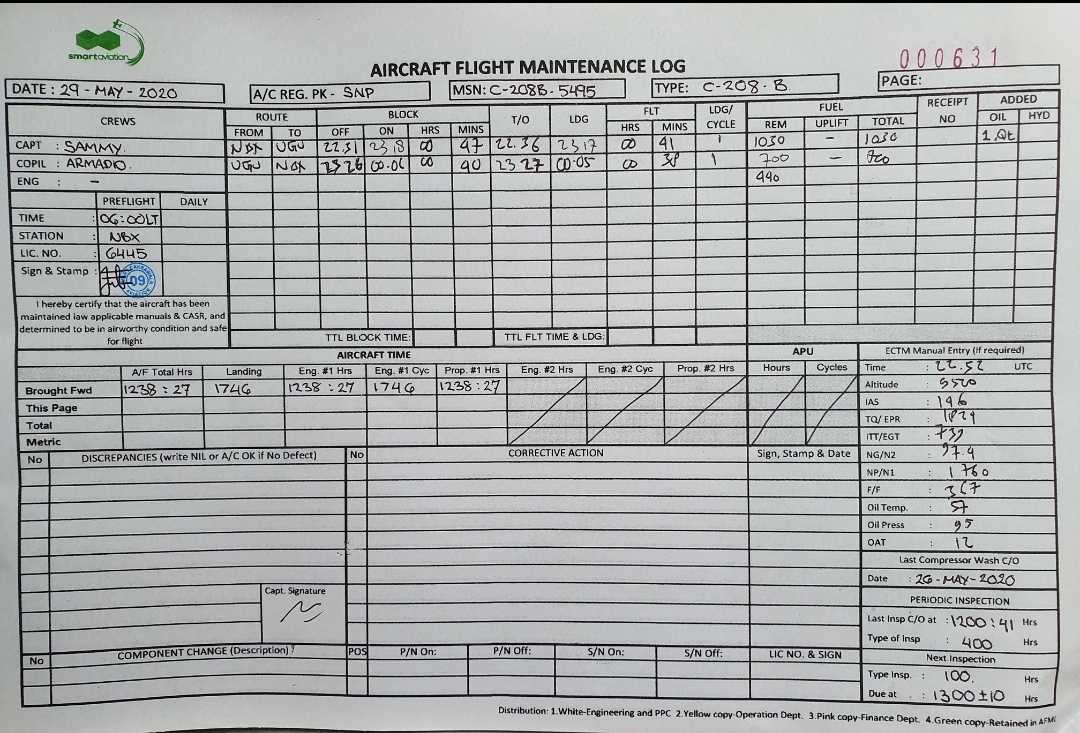 smartaviation
000631
AIRCRAFT FLIGHT MAINTENANCE LOG
DATE : 29 - MAY - 2020 A/C REG. PK - SNP MSN: C-208B-5495 TYPE: C-208-B PAGE:
CREWS ROUTE BLOCK T/O LDG FLT LDG/ CYCLE FUEL RECEIPT NO ADDED
FROM TO OFF ON HRS MINS HRS MINS REM UPLIFT TOTAL OIL HYD
CAPT : SAMMY. NBX UGU 22.31 23,18 00 47 22.36 23,17 00 41 1 1030 - 1030 1 Qt
COPIL : ARMADIO. UGU NBX 23 26 00.06 00 40 23 27 00.05 00 38 1 700 - 700
ENG : - 490
PREFLIGHT DAILY
TIME : 06:00LT
STATION : NBX
LIC. NO. : 6445
Sign & Stamp : 09
I hereby certify that the aircraft has been
maintained law applicable manuals & CASR, and
determined to be in airworthy condition and safe
for flight
TTL BLOCK TIME: TTL FLT TIME & LDG:
AIRCRAFT TIME APU ECTM Manual Entry (If required)
A/F Total Hrs Landing Eng. #1 Hrs Eng. #1 Cyc Prop. #1 Hrs Eng. #2 Hrs Eng. #2 Cyc Prop. #2 Hrs Hours Cycles
Brought Fwd 1238 : 27 1746 1238 : 27 1746 1238 : 27
This Page
Total
Metric
Time : 22.52 UTC
Altitude : 9500
IAS : 146
TQ/ EPR : 1829
ITT/EGT : 739
NG/N2 : 97.4
NP/N1 : 1760
F/F : 367
Oil Temp. : 57
Oil Press : 95
OAT : 12
No DISCREPANCIES (write NIL or A/C OK if No Defect) No CORRECTIVE ACTION Sign, Stamp & Date
Last Compressor Wash C/O
Date : 26 - MAY - 2020
Capt. Signature
PERIODIC INSPECTION
Last Insp C/O at : 1200 : 41 Hrs
Type of Insp : 400 Hrs
Next Inspection
Type Insp. : 100. Hrs
Due at : 1300 ± 10 Hrs
No COMPONENT CHANGE (Description) ? POS P/N On: P/N Off: S/N On: S/N Off: LIC NO. & SIGN
Distribution: 1.White-Engineering and PPC 2.Yellow copy-Operation Dept. 3.Pink copy-Finance Dept. 4.Green copy-Retained in AFML